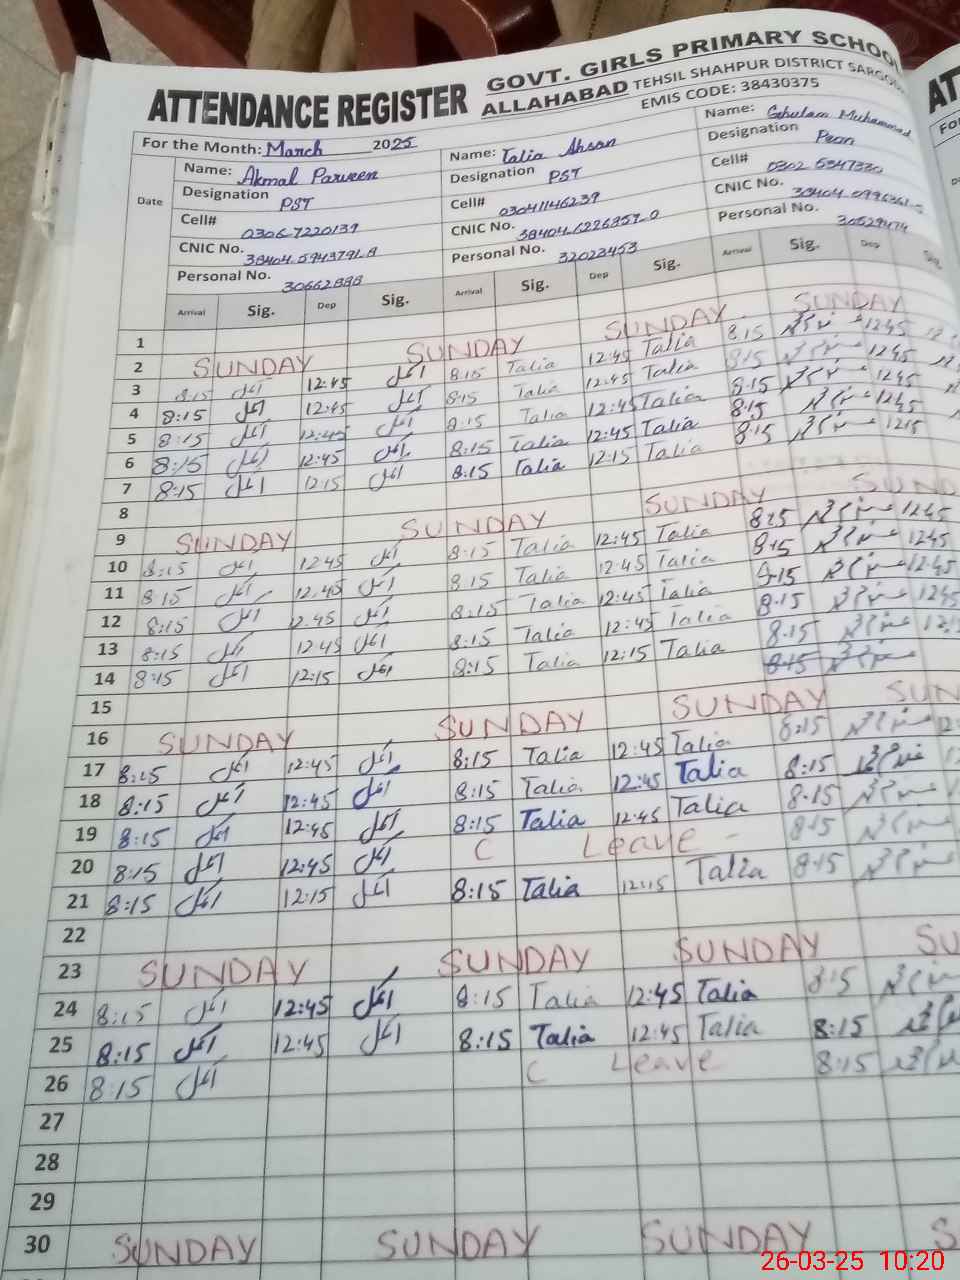 ATTENDANCE REGISTER GOVT. GIRLS PRIMARY SCHOOL
ALLAHABAD TEHSIL SHAHPUR DISTRICT SARGO
EMIS CODE: 38430375
For the Month: March 2025
Date
Name: Akmal Parveen Name: Talia Ahsan Name: Ghulam Muhammad
Designation PST Designation PST Designation Peon
Cell# 0306-7220139 Cell# 03041146239 Cell# 0302
CNIC No. CNIC No. CNIC No.
Personal No. Personal No. 32023453 Personal No. 30529474
Arrival Sig. Dep Sig. Arrival Sig. Dep Sig. Arrival Sig. Dep Sig.
1
2 SUNDAY SUNDAY SUNDAY SUNDAY
3 8:15 اکمل 12:45 اکمل 8:15 Talia 12:45 Talia 8.15 1245
4 8:15 اکمل 12:45 اکمل 8:15 Talia 12:45 Talia 8:15 1245
5 8:15 اکمل 12:45 اکمل 8:15 Talia 12:45 Talia 8:15 1245
6 8:15 اکمل 12:45 اکمل 8:15 Talia 12:45 Talia 8:15 1245
7 8:15 اکمل 12:15 اکمل 8:15 Talia 12:15 Talia 8:15 1215
8
9 SUNDAY SUNDAY SUNDAY SUND
10 8:15 اکمل 12:45 اکمل 8:15 Talia 12:45 Talia 8:15 1245
11 8:15 اکمل 12:45 اکمل 8:15 Talia 12:45 Talia 8:15 1245
12 8:15 اکمل 12:45 اکمل 8:15 Talia 12:45 Talia 8:15 1245
13 8:15 اکمل 12:45 اکمل 8:15 Talia 12:45 Talia 8:15 1245
14 8:15 اکمل 12:15 اکمل 8:15 Talia 12:15 Talia 8:15
15
16 SUNDAY SUNDAY SUNDAY SUN
17 8:15 اکمل 12:45 اکمل 8:15 Talia 12:45 Talia 8:15
18 8:15 اکمل 12:45 اکمل 8:15 Talia 12:45 Talia 8:15
19 8:15 اکمل 12:45 اکمل 8:15 Talia 12:45 Talia 8:15
20 8:15 اکمل 12:45 اکمل C Leave - 8:15
21 8:15 اکمل 12:15 اکمل 8:15 Talia 12:15 Talia 8:15
22
23 SUNDAY SUNDAY SUNDAY SU
24 8:15 اکمل 12:45 اکمل 8:15 Talia 12:45 Talia 8:15
25 8:15 اکمل 12:45 اکمل 8:15 Talia 12:45 Talia 8:15
26 8:15 اکمل C Leave 8:15
27
28
29
30 SUNDAY SUNDAY SUNDAY S
26-03-25 10:20